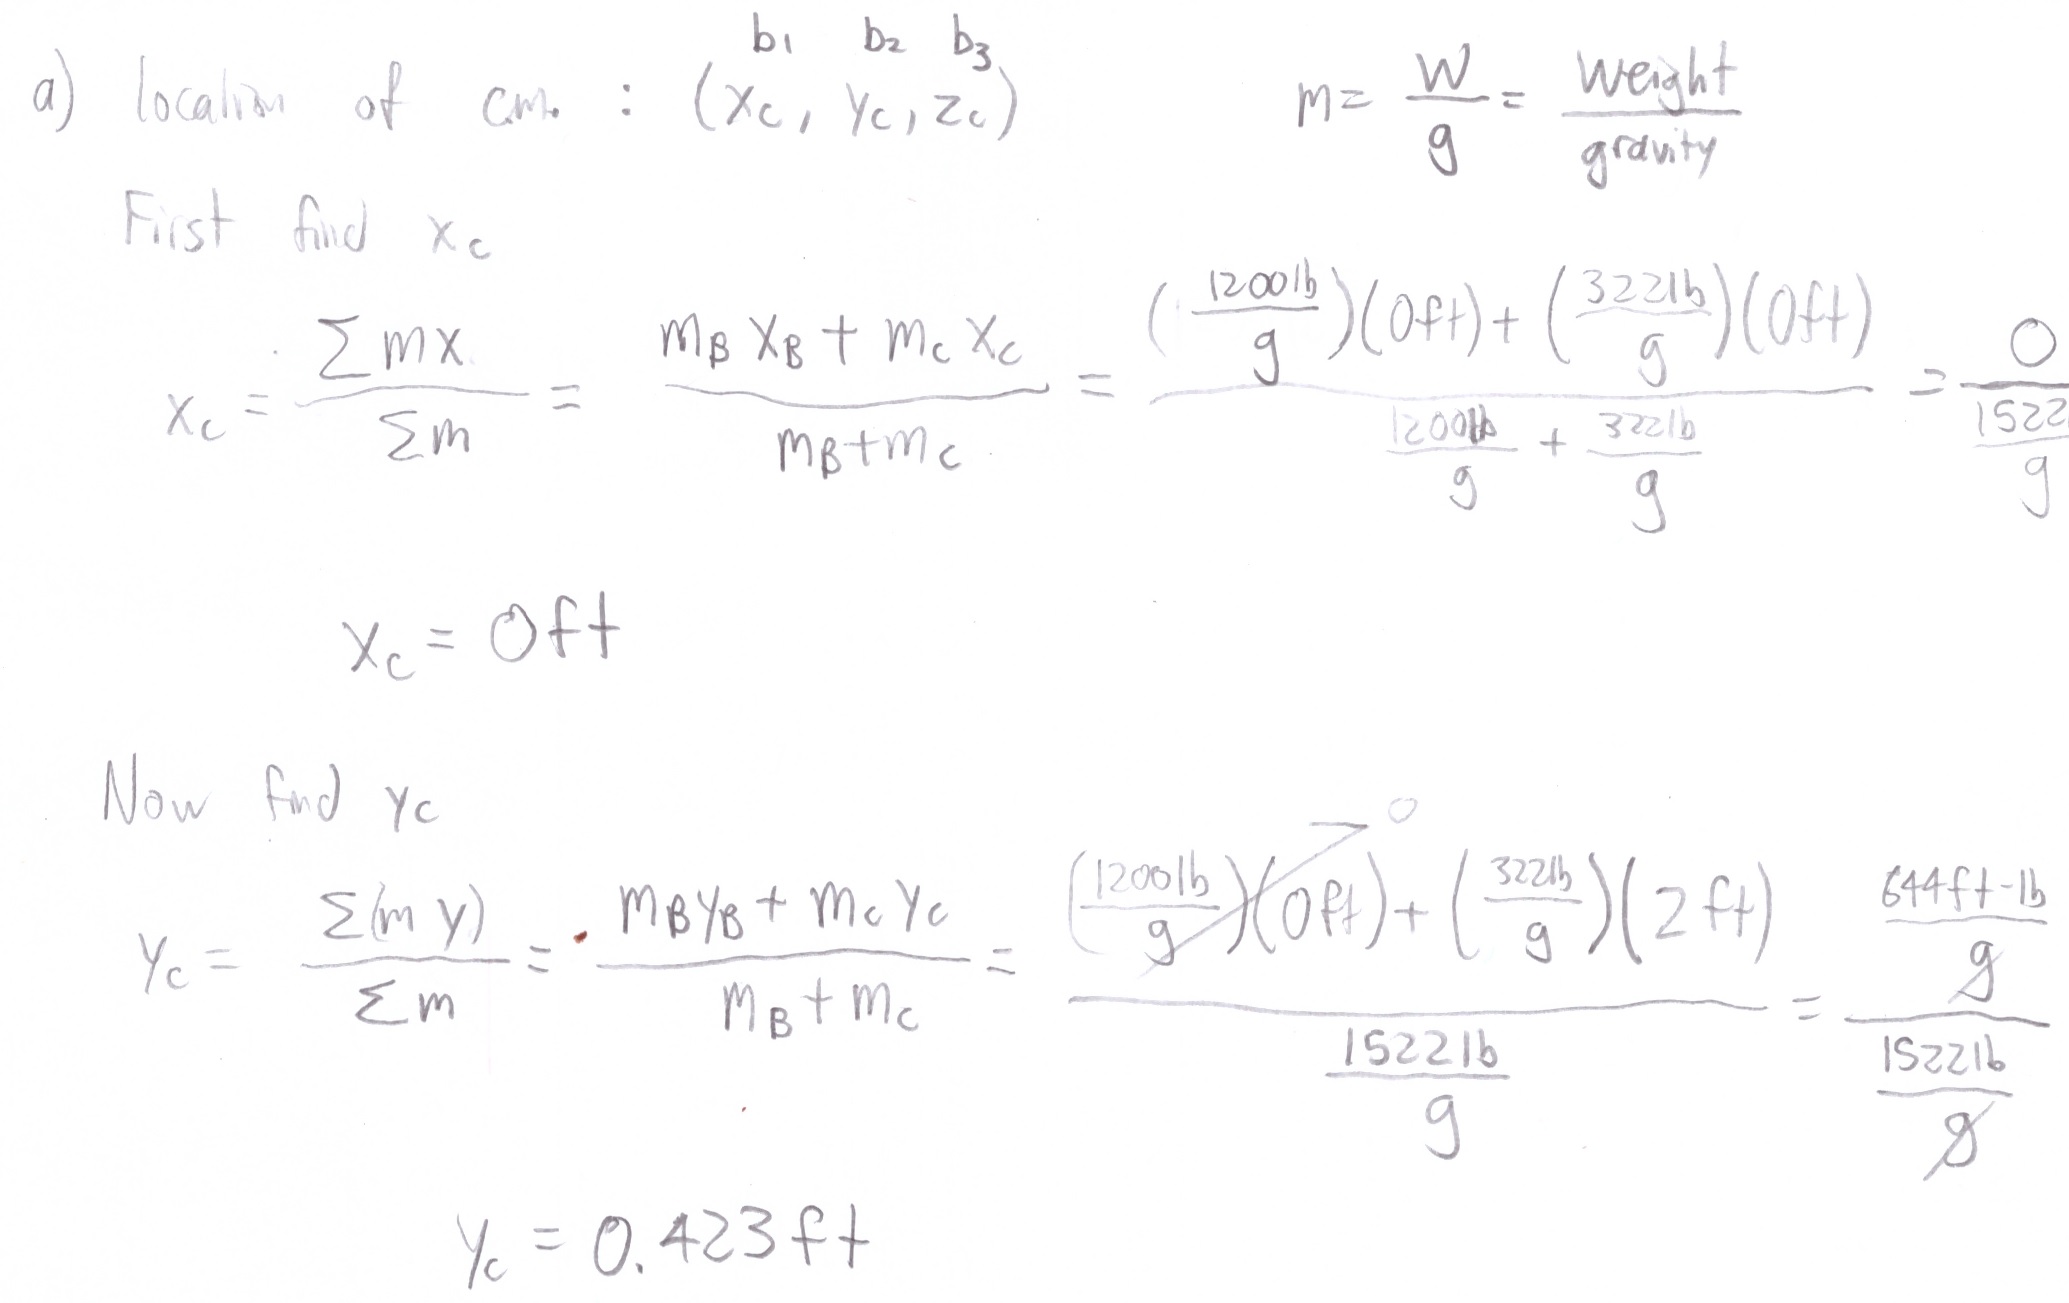 b1 b2 b3
a) location of c.m. : (xc, yc, zc) m = W/g = Weight/gravity
First find xc
xc = Σmx/Σm = (mB xB + mc xc)/(mB + mc) = ((1200lb/g)(0ft) + (322lb/g)(0ft))/(1200lb/g + 322lb/g) = 0/(1522/g)
xc = 0ft
Now find yc
0
yc = Σ(my)/Σm = (mB yB + mc yc)/(mB + mc) = ((1200lb/g)(0ft) + (322lb/g)(2ft))/(1522lb/g) = (644ft-lb/g)/(1522lb/g)
yc = 0.423ft